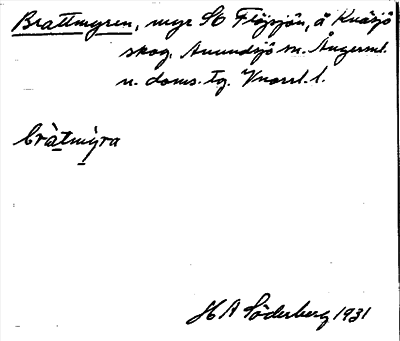 Brattmyren, myr SO Flösjön, å Knäsjö
skog. Anundsjö sn. Ångerml.
n. doms. tg. Vnorrl. l.
bràtmỳra
H A Söderberg 1931